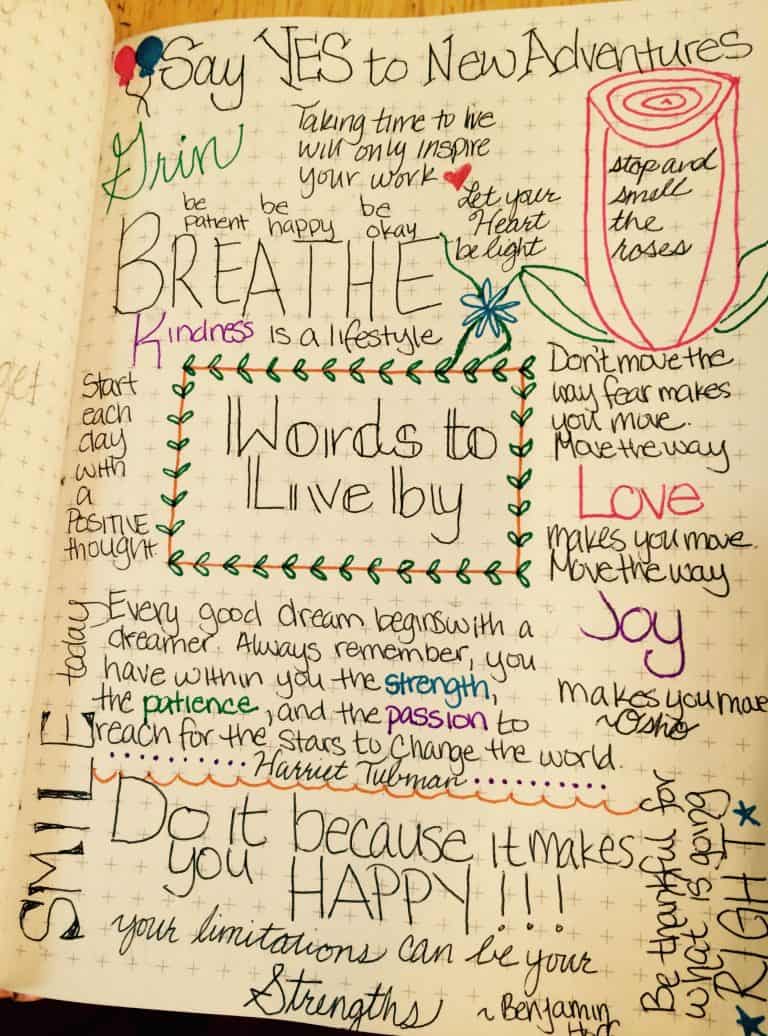 Say YES to New Adventures
Grin
Taking time to live
will only inspire
your work
stop and
smell
the
roses
be
patient
be
happy
be
okay
Let your
Heart
be light
BREATHE
Kindness is a lifestyle
Start
each
day
with
a
POSITIVE
thought
Words to
Live by
Don't move the
way fear makes
you move.
Move the way
Love
makes you move.
Move the way
Joy
makes you move
~Osho
SMILE today
Every good dream begins with a
dreamer. Always remember, you
have within you the strength,
the patience, and the passion to
reach for the stars to change the world.
Harriet Tubman
Do it because it makes
you HAPPY!!!
your limitations can be your
Strengths
~Benjamin
Be thankful for
what is going
RIGHT